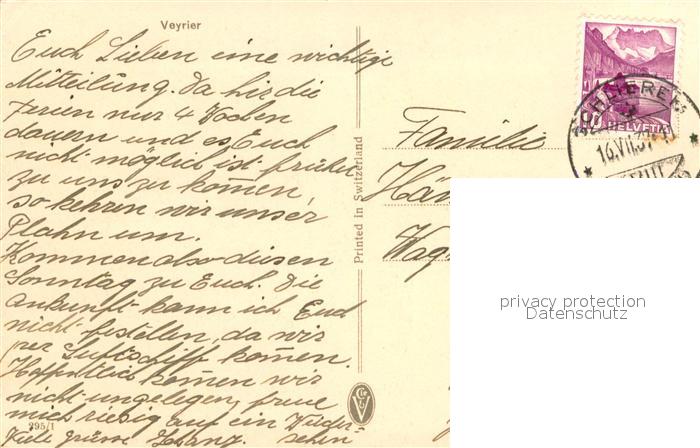 Veyrier
Euch Lieben eine wichtige
Mitteilung. Da hir die
Ferien nur 4 Wochen
dauern und es Euch
nicht möglich ist früher
zu uns zu komen
so kehren wir unser
Plahn um.
Kommen also diesen
Sonntag zu Euch. Die
Ankunft kann ich Euch
nicht festellen, da wir
per Luftschiff komen.
Hoffentlich komen wir
nicht ungelegen, freue
mich riesig auf ein Wieder-
sehn
Viele grüsse
295/1
Printed in Switzerland
Familie
HELVETIA
SCHLIEREN
16.VII.37
privacy protection
Datenschutz